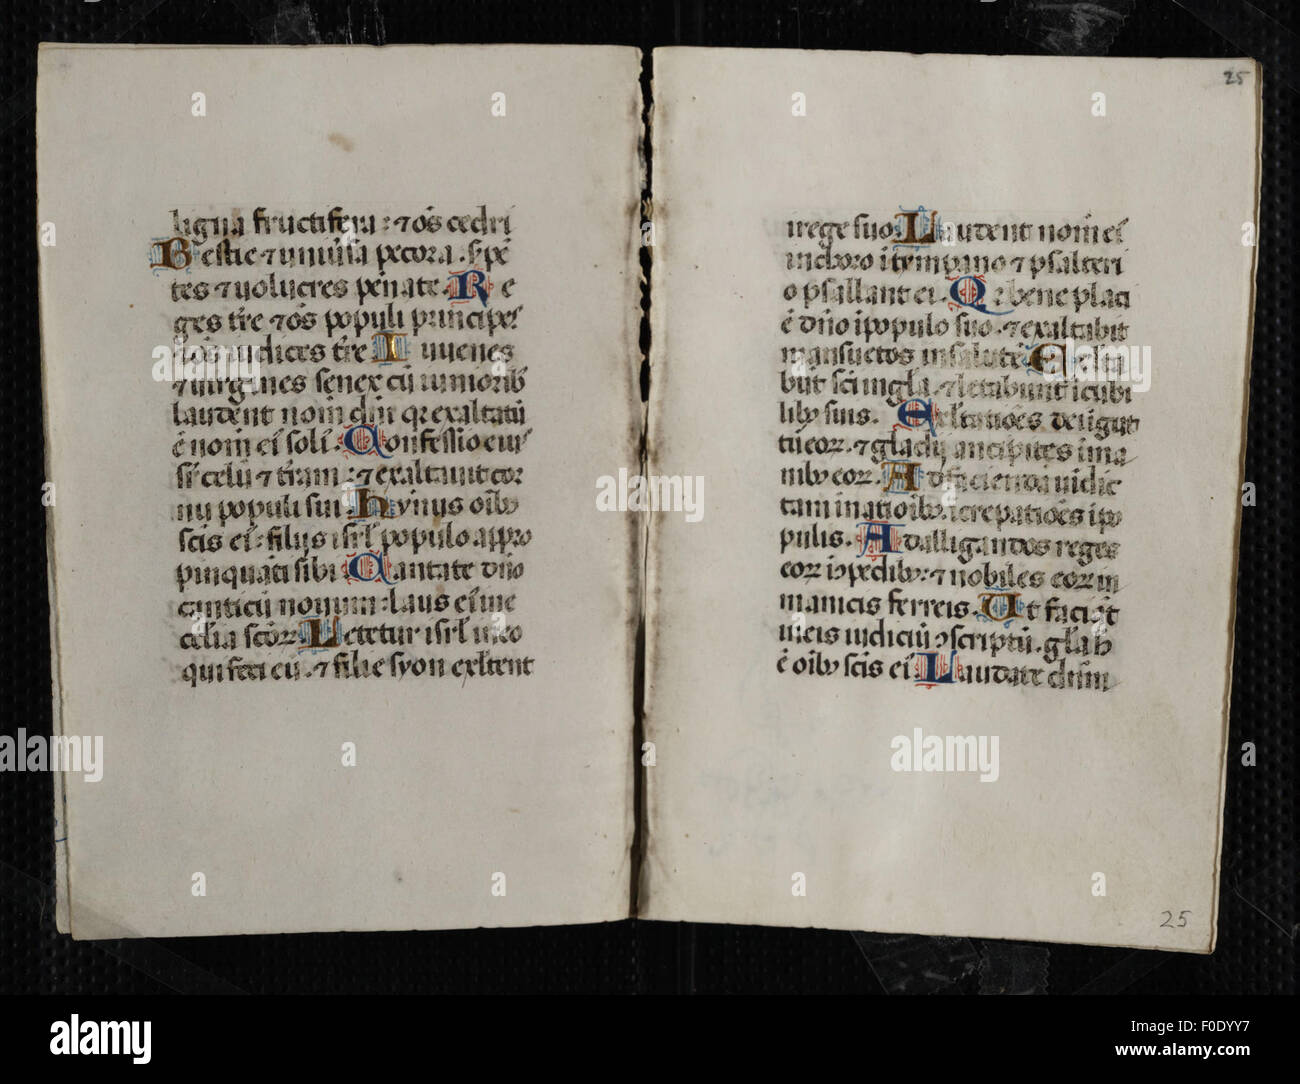 ligna fructifera: ⁊ oс̄ cedri
Bestie ⁊ uniūsa pecora. s̄pē
tes ⁊ uolucres pēnate. Re
ges tr̄e ⁊ oс̄ populi principes
⁊ oс̄ iudices tr̄e Iuuenes
⁊ uirgines senex cū iuniorib̄
laudent nom̄ dn̄i qr exaltatū
ē nom̄ eī solī. Confessio eius
sr̄ celū ⁊ tr̄am: ⁊ exaltauit cor
nu populi sui. hymnus oīb9
scis eī: filijs isrl̄ populo appro
pinquāti sibi Cantate dn̄o
canticū nouum: laus eī in e
cc̄lia sc̄oꝝ. Letetur isrl̄ in eo
qui fecit eū. ⁊ filie syon exl̄tent
25
in rege suo. Laudent nom̄ eī
in choro i tympano ⁊ psalteri
o psallant ei. Qr bene placi
ē dn̄o i populo suo. ⁊ exaltabit
mansuetos in salutē Exl̄ta
būt sc̄i in gl̄a. ⁊ letabunt i cubi
lib9 suis. Exl̄tatioēs dei i gut
ture eoꝝ. ⁊ gladij ancipites i ma
nib9 eoꝝ. Ad faciendā uindic
tam in natioīb9. icrepatioēs i po
pulis. Ad alligandos reges
eoꝝ i ꝯpedib9: ⁊ nobiles eoꝝ in
manicis ferreis. Ut faciāt
in eis iudiciū ꝯscriptū. gl̄a h̄
ē oīb9 scis eī Laudate dn̄m
25
alamy
Image ID: F0DYY7
www.alamy.com